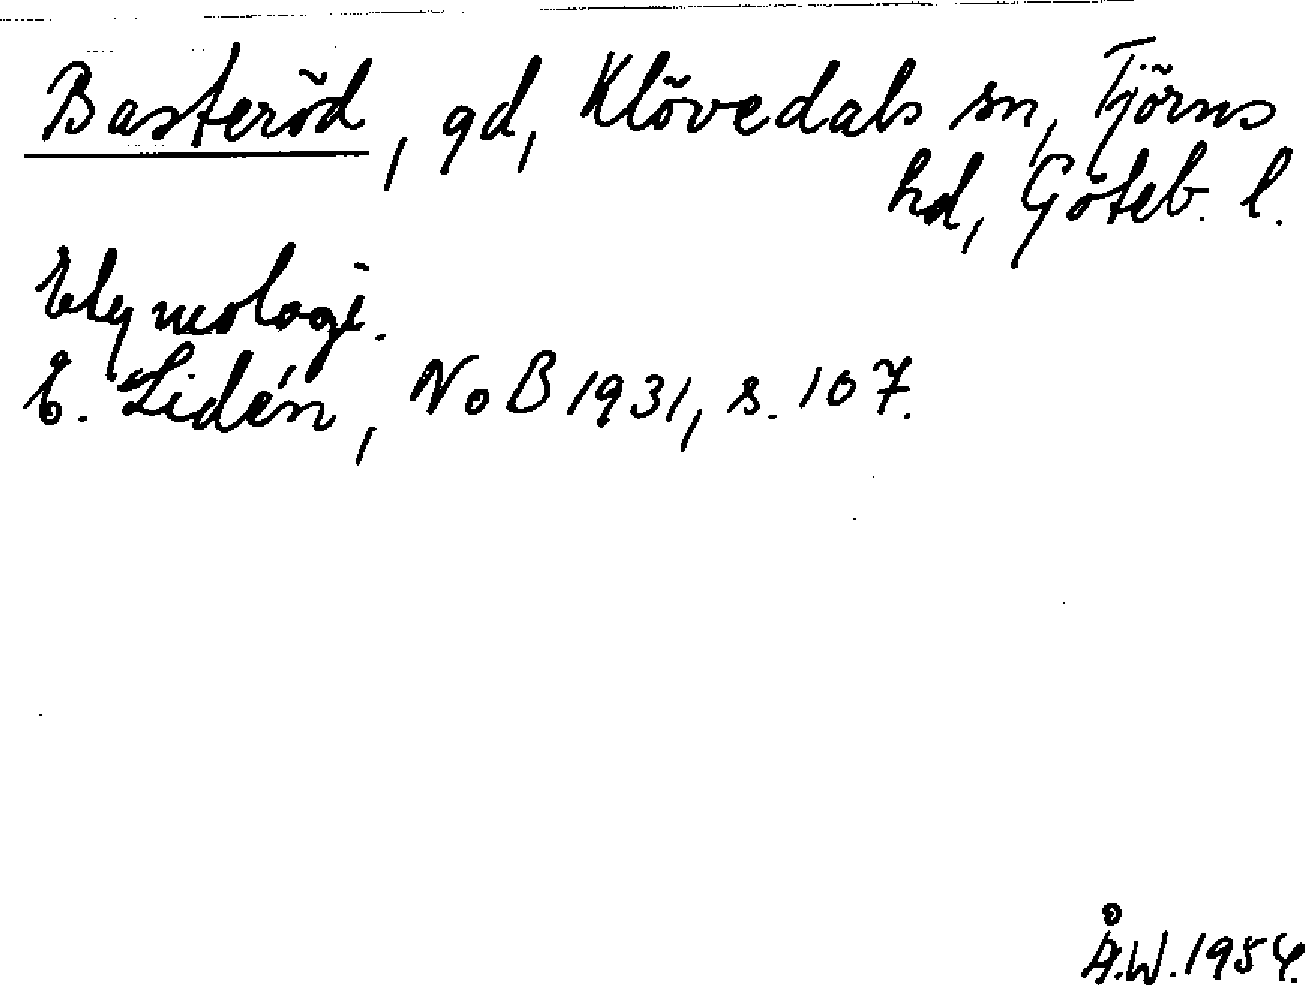 Basteröd, gd, Klövedals sn, Tjörns
hd, Göteb. l.
Etymologi.
E. Lidén, NoB 1931, s. 107.
Å.W. 1954.